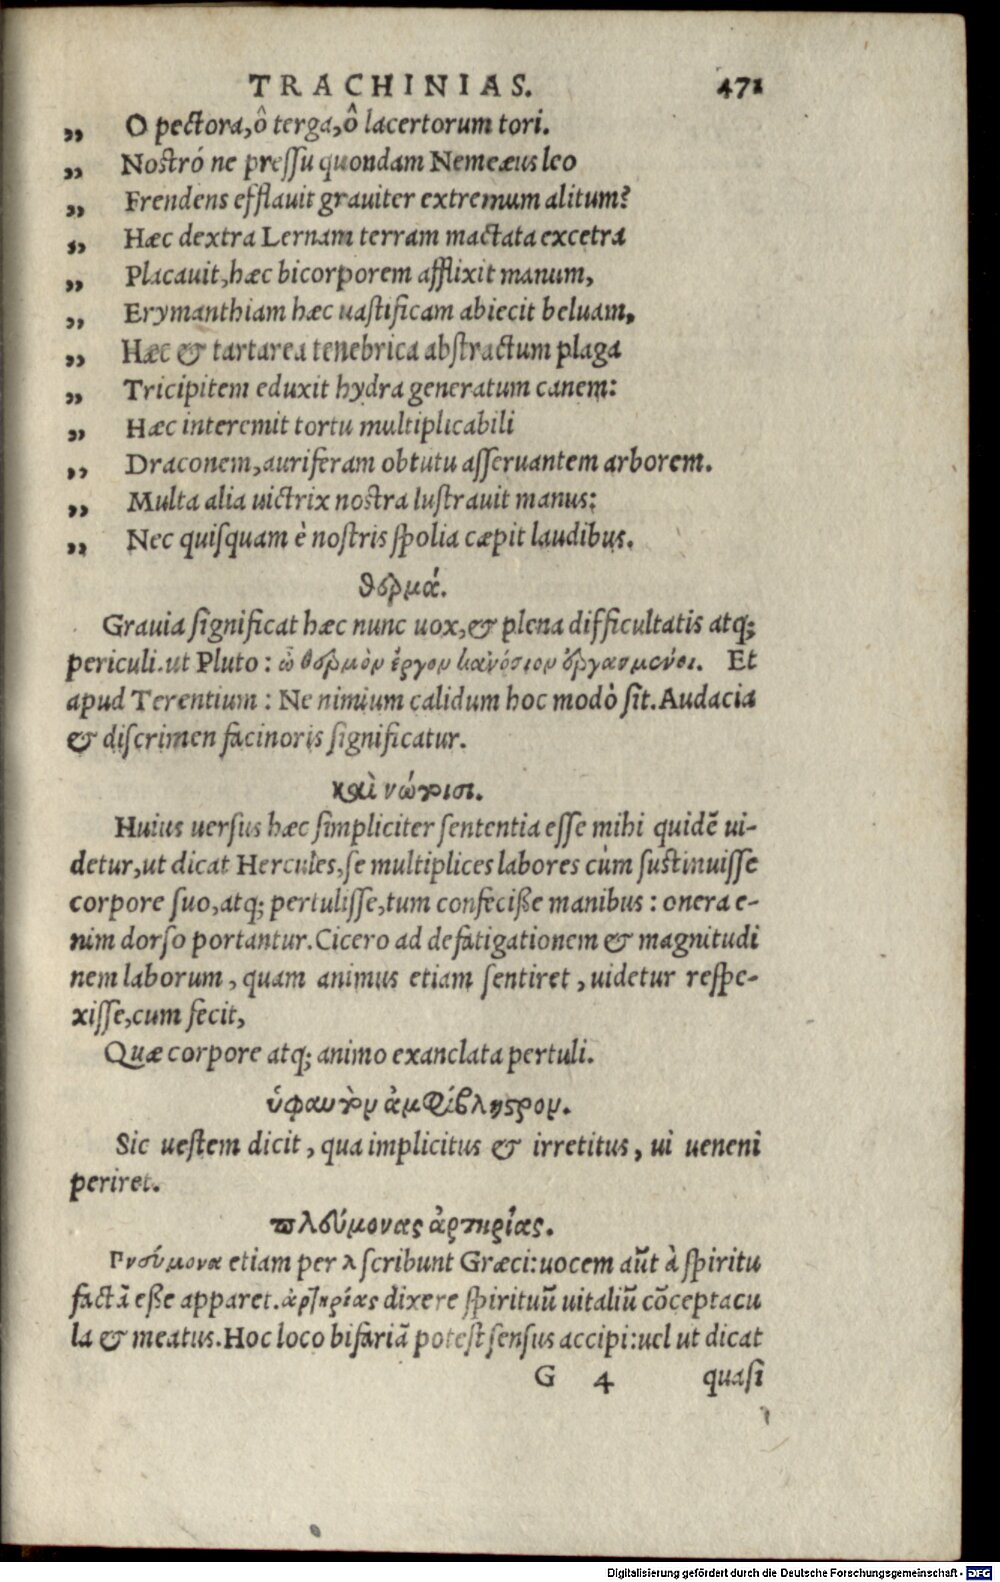 TRACHINIAS. 471
„ O pectora, ô terga, ô lacertorum tori.
„ Nostró ne pressu quondam Nemeæus leo
„ Frendens efflauit grauiter extremum alitum?
„ Hæc dextra Lernam terram mactata excetra
„ Placauit, hæc bicorporem afflixit manum,
„ Erymanthiam hæc uastificam abiecit beluam,
„ Hæc & tartarea tenebrica abstractum plaga
„ Tricipitem eduxit hydra generatum canem:
„ Hæc interemit tortu multiplicabili
„ Draconem, auriferam obtutu asseruantem arborem.
„ Multa alia uictrix nostra lustrauit manus:
„ Nec quisquam è nostris spolia cæpit laudibus.
θερμά.
Grauia significat hæc nunc uox, & plena difficultatis atq;
periculi. ut Pluto: ὦ θερμὸν ἔργον κἀνόσιον ἐργασμένοι. Et
apud Terentium: Ne nimium calidum hoc modò sit. Audacia
& discrimen facinoris significatur.
καὶ νώτοισι.
Huius uersus hæc simpliciter sententia esse mihi quidē ui-
detur, ut dicat Hercules, se multiplices labores cùm sustinuisse
corpore suo, atq; pertulisse, tum confeciße manibus: onera e-
nim dorso portantur. Cicero ad defatigationem & magnitudi
nem laborum, quam animus etiam sentiret, uidetur respe-
xisse, cum fecit,
Quæ corpore atq; animo exanclata pertuli.
ὑφαντὸν ἀμφίβληστρον.
Sic uestem dicit, qua implicitus & irretitus, ui ueneni
periret.
πλεύμονας ἀρτηρίας.
Πνεύμονα etiam per λ scribunt Græci: uocem aūt à spiritu
factā eße apparet. ἀρτηρίας dixere spirituū uitaliū cōceptacu
la & meatus. Hoc loco bifariā potest sensus accipi: uel ut dicat
G 4 quasi
Digitalisierung gefördert durch die Deutsche Forschungsgemeinschaft - DFG